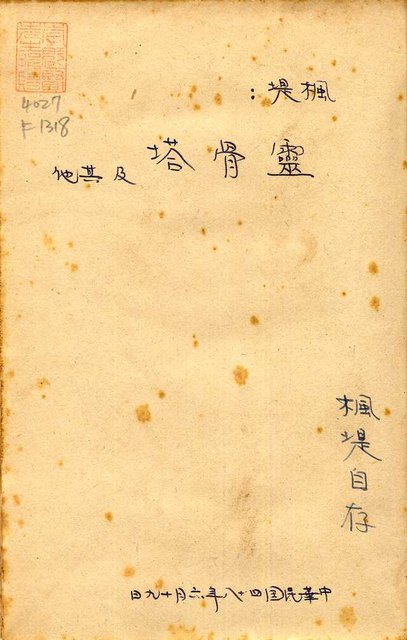 4027
F1318
楓堤：
靈骨塔及其他
楓堤自存
中華民国四十八年六月十九日